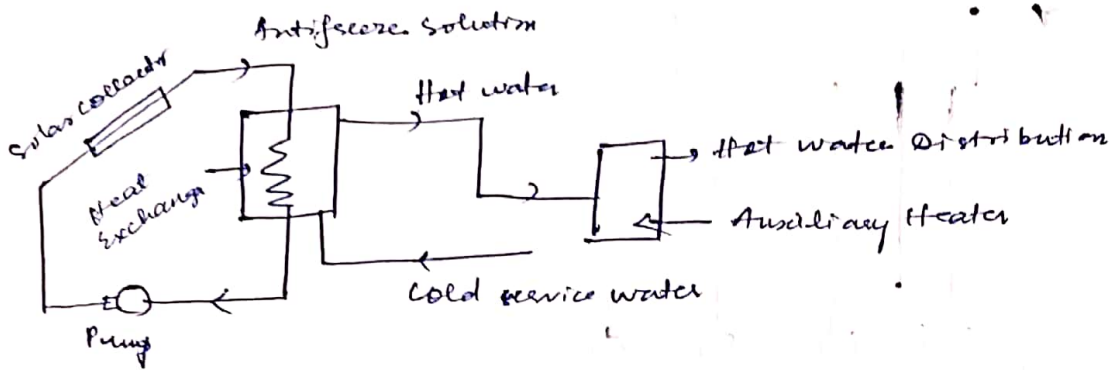 Antifreeze solution
Solar collector
Hot water
Heat
Exchanger
Hot water Distribution
Auxiliary Heater
Cold service water
Pump